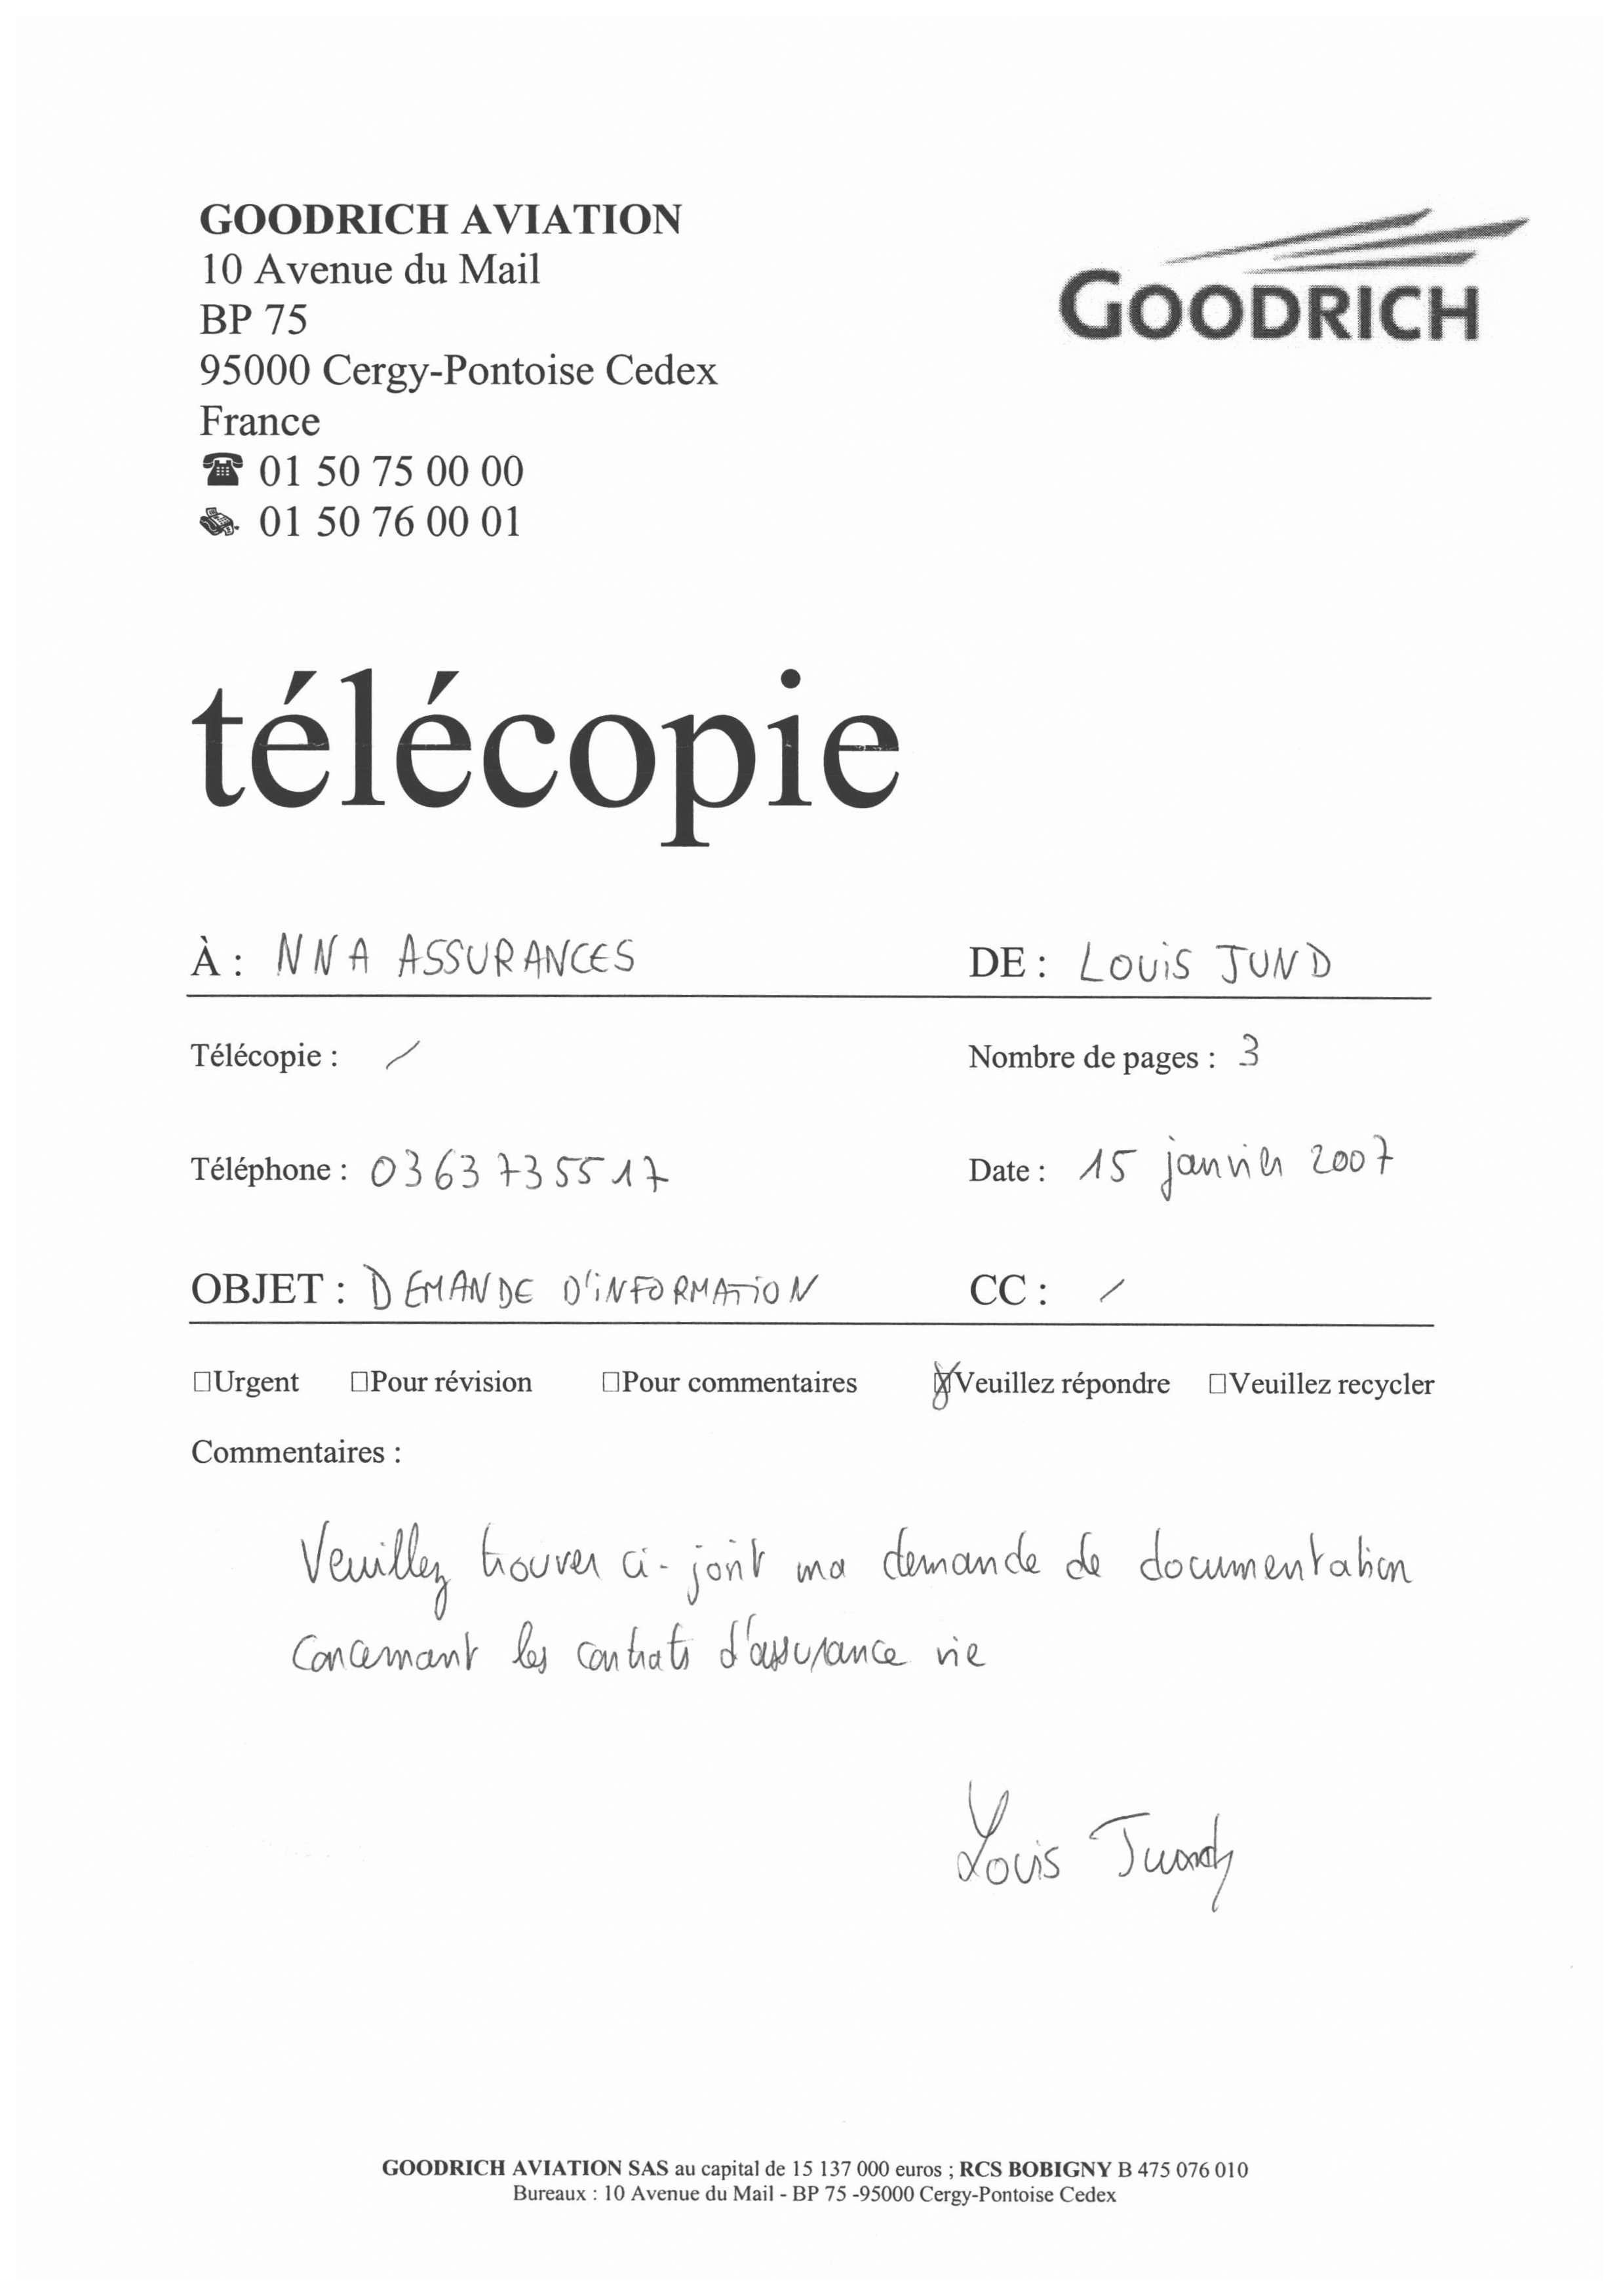 GOODRICH AVIATION
10 Avenue du Mail
BP 75
95000 Cergy-Pontoise Cedex
France
☎ 01 50 75 00 00
01 50 76 00 01
GOODRICH
télécopie
À : NNA ASSURANCES DE : LOUIS JUND
Télécopie : / Nombre de pages : 3
Téléphone : 0363735517 Date : 15 janvier 2007
OBJET : DEMANDE D'INFORMATION CC : /
☐Urgent ☐Pour révision ☐Pour commentaires ☒Veuillez répondre ☐Veuillez recycler
Commentaires :
Veuillez trouver ci-joint ma demande de documentation
concernant les contrats d'assurance vie
Louis Jund
GOODRICH AVIATION SAS au capital de 15 137 000 euros ; RCS BOBIGNY B 475 076 010
Bureaux : 10 Avenue du Mail - BP 75 -95000 Cergy-Pontoise Cedex